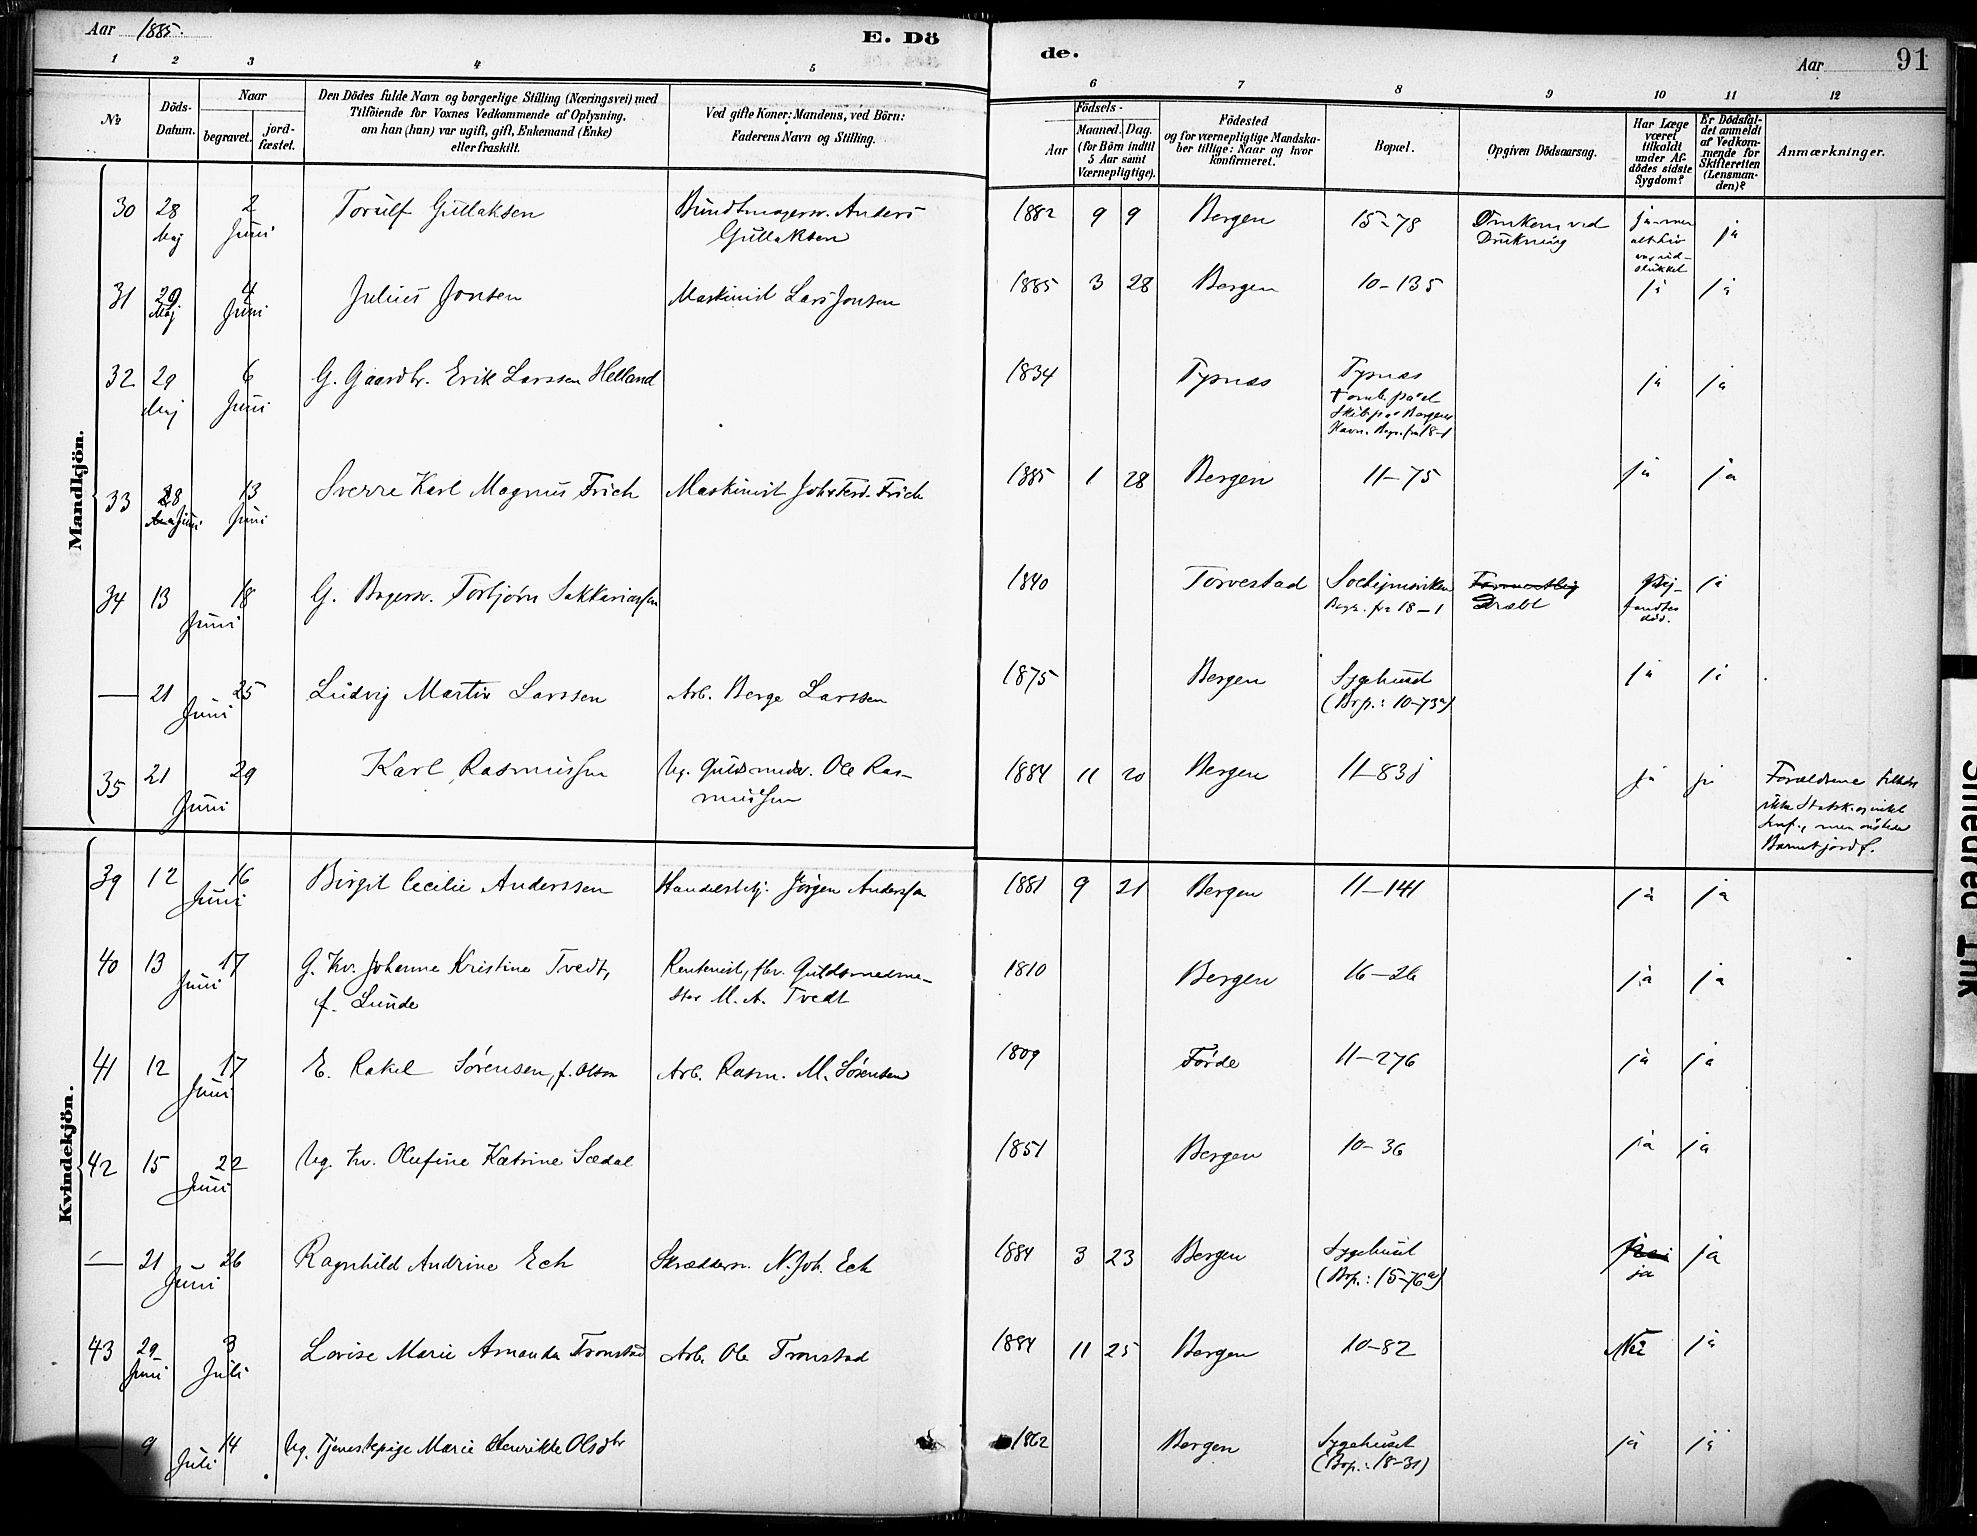 Aar 1885.
E. Dö
de.
Aar
91
1 2 3 4 5 6 7 8 9 10 11 12
No
Döds-
Datum.
Naar
begravet.
jord-
fæstet.
Den Dödes fulde Navn og borgerlige Stilling (Næringsvei) med
Tilföiende for Voxnes Vedkommende af Oplysning,
om han (hun) var ugift, gift, Enkemand (Enke)
eller fraskilt.
Ved gifte Koner: Mandens, ved Börn:
Faderens Navn og Stilling.
Födsels-
Aar
Maaned.
Dag.
(for Börn indtil
5 Aar samt
Værnepligtige).
Födested
og for værnepligtige Mandska-
ber tillige: Naar og hvor
konfirmeret.
Bopæl.
Opgiven Dödsaarsag.
Har Læge
været
tilkaldt
under Af-
dödes sidste
Sygdom?
Er Dödsfal-
det anmeldt
af Vedkom-
mende for
Skifteretten
(Lensman-
den)?
Anmærkninger.
Mandkjön.
30 28 Maj 2 Juni Torulf Gullaksen Bundtmagersv. Anders
Gullaksen
1882 9 9 Bergen 15-78 Druknet ved
Drukning
ja
31 29 Maj 4 Juni Julius Jonsen Maskinist Lars Jonsen 1885 3 28 Bergen 10-135 ja ja
32 29 Maj 6 Juni G. Gaardbr. Erik Larssen Helland 1834 Tysnæs Tysnæs
Skib paa Bergens
Havn. Begr. fra 18-1
ja ja
33 28 Juni 13 Juni Sverre Karl Magnus Frich Maskinist Joh. Ferd. Frich 1885 1 28 Bergen 11-75 ja ja
34 13 18 Juni G. Bagersv. Torbjørn Sakkariassen 1840 Torvestad
Begr. fra 18-1
Dræbt
fandtes
død.
ja
— 21 25 Juni Ludvig Martin Larssen Arb. Berge Larssen 1875 Bergen Sygehuset
(Bop.: 10-73a)
ja ja
35 21 29 Juni Karl Rasmussen Ug. Guldsmedsv. Ole Ras-
mussen
1884 11 20 Bergen 11-83j ja ja Forældrene tilhører
ikke Statsk. men ønsker
Barnet jordf.
Kvindekjön.
39 12 16 Juni Birgit Cecilie Anderssen Handelsbetj. Jørgen Anderssen 1881 9 21 Bergen 11-141 ja ja
40 13 17 Juni G. Kv. Johanne Kristine Tvedt,
f. Lunde
Rentenist, fhv. Guldsmedme-
ster M. A. Tvedt
1810 Bergen 16-26 ja ja
41 12 17 Juni E. Rakel Sørensen, f. Olsen Arb. Rasm. M. Sørensen 1809 Førde 11-276 ja ja
42 15 22 Juni Ug. Kv. Olufine Katrine Sædal 1851 Bergen 10-36 ja ja
— 21 26 Juni Ragnhild Andrine Eck Skræddersv. N. Joh. Eck 1884 3 23 Bergen Sygehuset
(Bop.: 15-76a)
ja ja
43 29 Juni 3 Juli Lovise Marie Amanda Tronstad Arb. Ole Tronstad 1884 11 25 Bergen 10-82 Nei ja
— 9 14 Juli Ug. Tjenestepige Marie Henrikke Olsdtr 1862 Bergen Sygehuset
(Bop.: 18-31)
ja ja